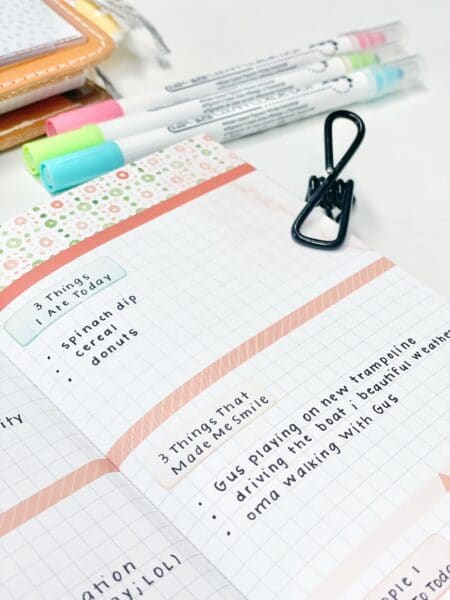 3 Things
I Ate Today
• spinach dip
• cereal
• donuts
3 Things That
Made Me Smile
• Gus playing on new trampoline
• driving the boat i beautiful weather
• oma walking with Gus
ity
ation
LOL)
ple I
To Today